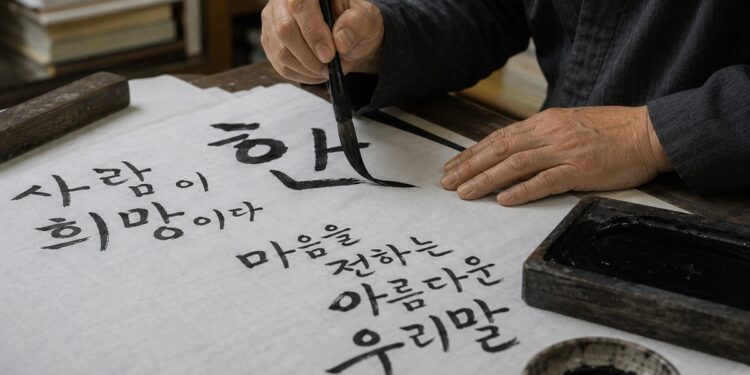 한
사람이
희망이다
마음을
전하는
아름다운
우리말